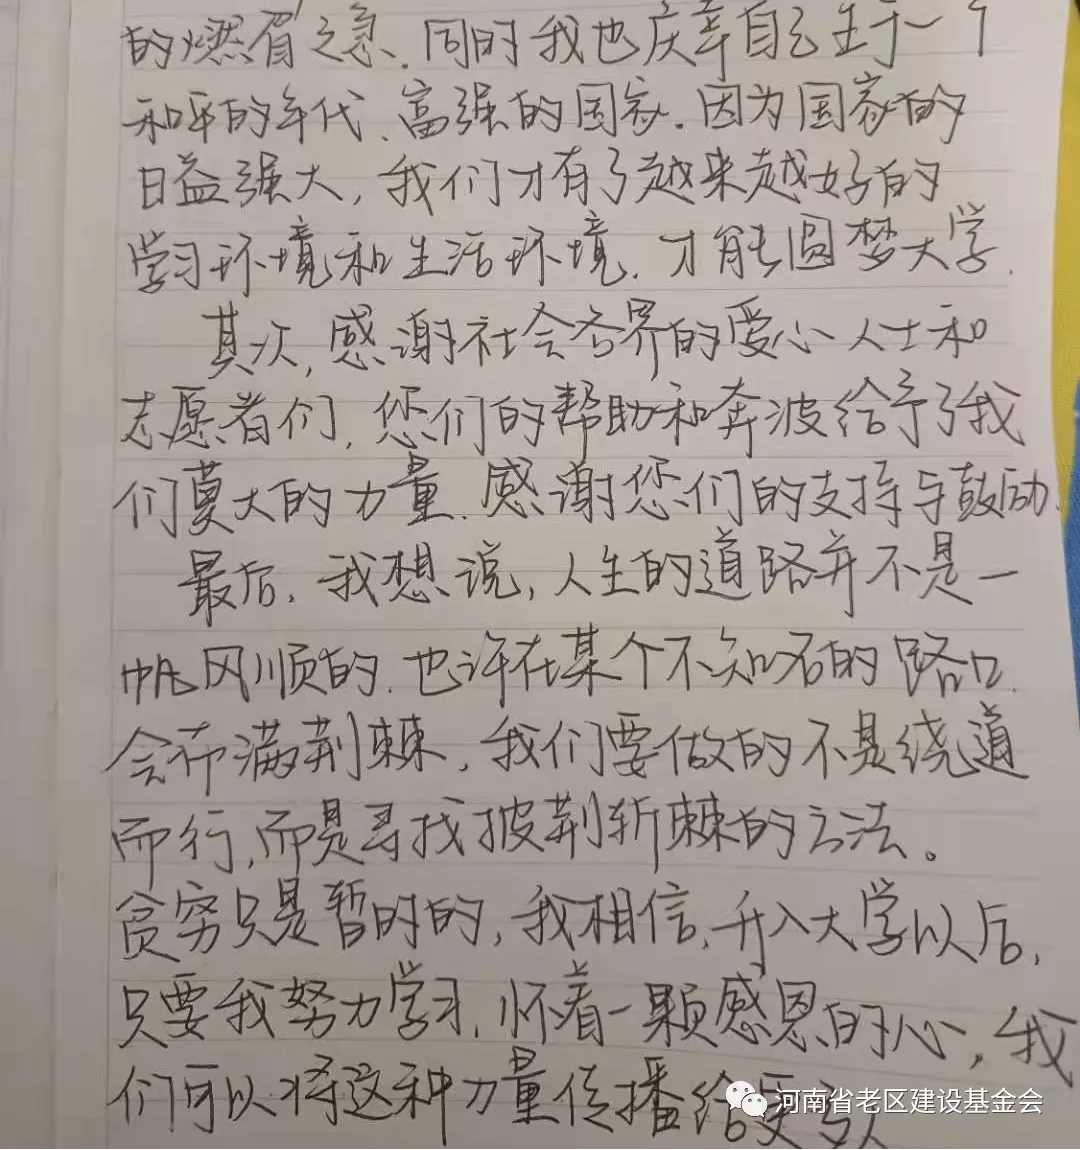 的燃眉之急.同时我也庆幸自己生于一个
和平的年代、富强的国家.因为国家的
日益强大,我们才有了越来越好的
学习环境和生活环境.才能圆梦大学.
其次,感谢社会各界的爱心人士和
志愿者们,您们的帮助和奔波给予了我
们莫大的力量.感谢您们的支持与鼓励.
最后,我想说,人生的道路并不是一
帆风顺的.也许在某个不知名的路口.
会布满荆棘,我们要做的不是绕道
而行,而是寻找披荆斩棘的方法。
贫穷只是暂时的,我相信,升入大学以后,
只要我努力学习,怀着一颗感恩的心,我
们可以将这种力量传播给更多人
河南省老区建设基金会